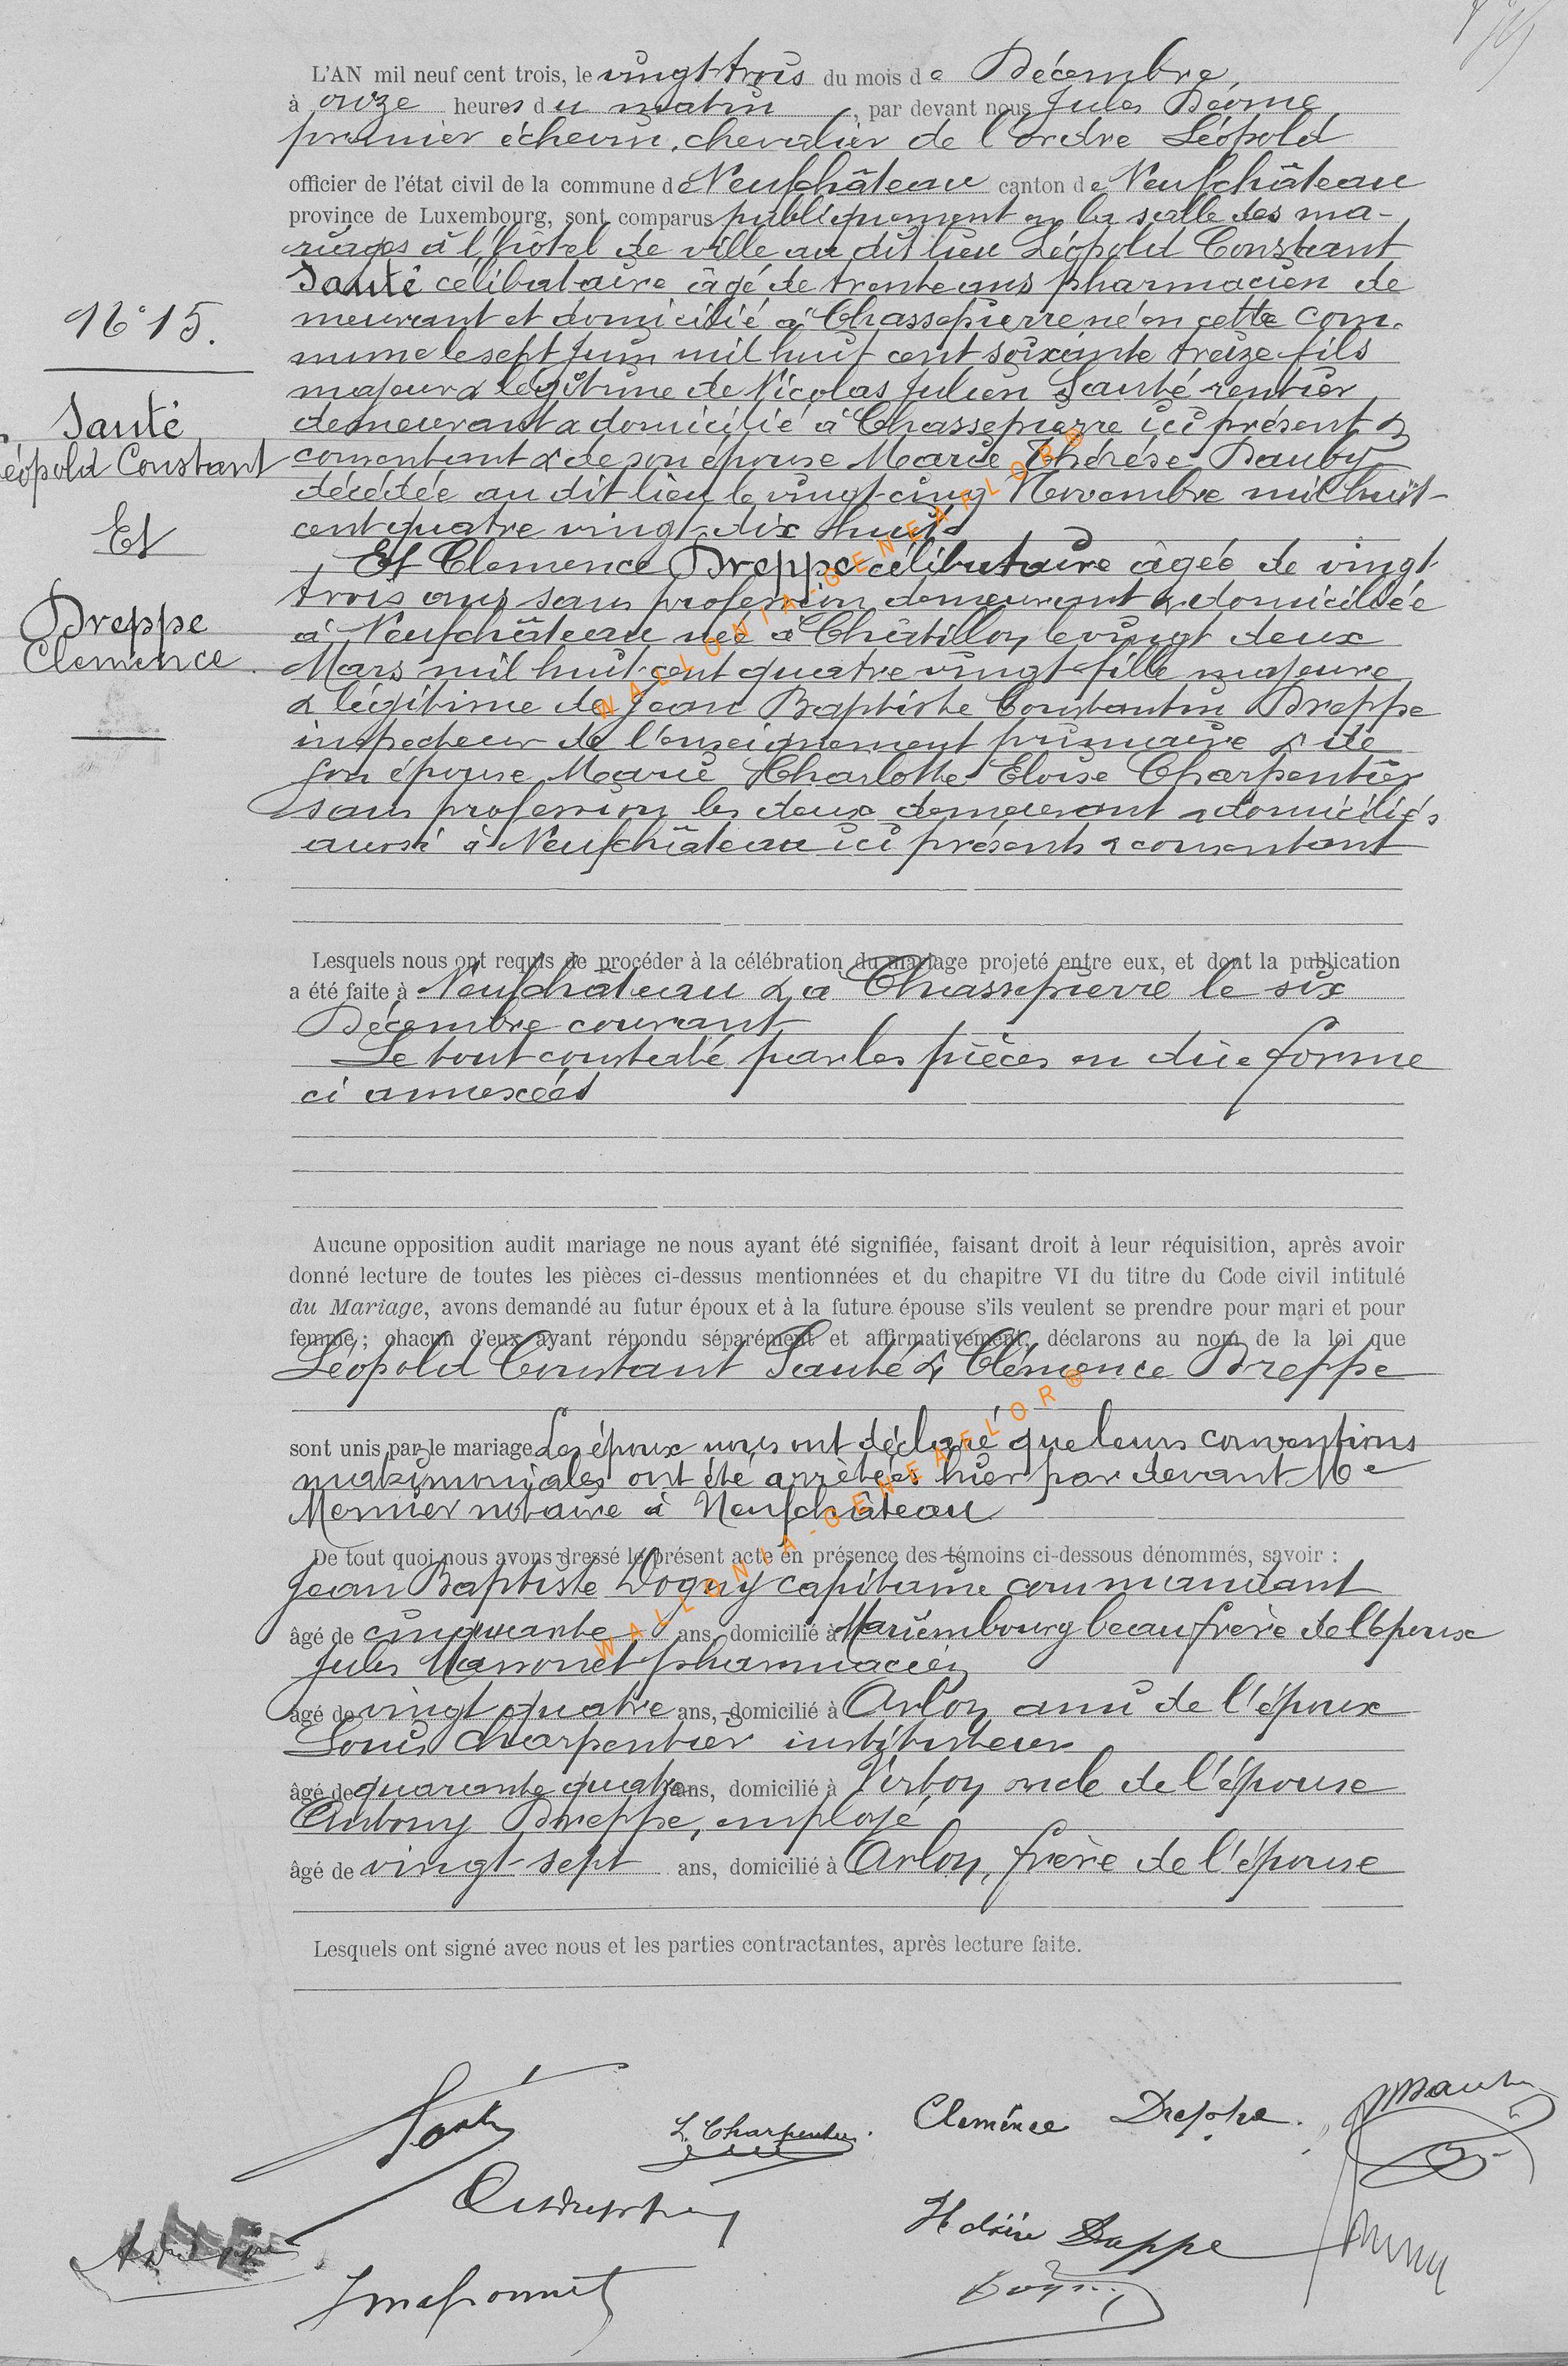 L'AN mil neuf cent trois, le vingt-trois du mois de Décembre,
à onze heures du matin, par devant nous Jules Déome
premier échevin, chevalier de l'ordre Léopold
officier de l'état civil de la commune de Neufchâteau canton de Neufchâteau
province de Luxembourg, sont comparus publiquement en la salle des ma-
riages à l'hôtel de ville au dit lieu Léopold Constant
Santé célibataire âgé de trente ans pharmacien de
meurant et domicilié à Chassepierre né en cette com-
mune le sept Juin mil huit cent soixante treize fils
majeur & légitime de Nicolas Julien Santé rentier
demeurant & domicilié à Chassepierre ici présent &
consentant & de son épouse Marie Thérèse Dauby
décédée au dit lieu le vingt-cinq Novembre mil huit-
cent quatre vingt-dix huit
Et Clemence Dreppe célibataire âgée de vingt
trois ans sans profession demeurant & domiciliée
à Neufchâteau née à Châtillon le vingt deux
Mars mil huit-cent quatre vingt-fille majeure
& légitime de Jean Baptiste Constantin Dreppe
inspecteur de l'enseignement primaire & de
son épouse Marie Charlotte Eloise Charpentier
sans profession les deux demeurant & domiciliés
aussi à Neufchâteau ici présents & consentant
N° 15.
Santé
Léopold Constant
Et
Dreppe
Clemence
Lesquels nous ont requis de procéder à la célébration du mariage projeté entre eux, et dont la publication
a été faite à Neufchâteau & à Chassepierre le six
Décembre courant
Le tout constaté par les pièces en due forme
ci annexées
Aucune opposition audit mariage ne nous ayant été signifiée, faisant droit à leur réquisition, après avoir
donné lecture de toutes les pièces ci-dessus mentionnées et du chapitre VI du titre du Code civil intitulé
du Mariage, avons demandé au futur époux et à la future épouse s'ils veulent se prendre pour mari et pour
femme ; chacun d'eux ayant répondu séparément et affirmativement, déclarons au nom de la loi que
Léopold Constant Santé & Clémence Dreppe
sont unis par le mariage Les époux nous ont déclaré que leurs conventions
matrimoniales ont été arrêtées hier par devant Me
Mernier notaire à Neufchâteau
De tout quoi nous avons dressé le présent acte en présence des témoins ci-dessous dénommés, savoir :
Jean Baptiste Doguy capitaine commandant
âgé de cinquante ans, domicilié à Mariembourg beau frère de l'épouse
Jules Massonet pharmacien
âgé de vingt quatre ans, domicilié à Arlon ami de l'époux
Louis Charpentier instituteur
âgé de quarante quatre ans, domicilié à Virton oncle de l'épouse
Antony Dreppe, employé
âgé de vingt-sept ans, domicilié à Arlon, frère de l'épouse
Lesquels ont signé avec nous et les parties contractantes, après lecture faite.
Santé
L. Charpentier.
Clemence Dreppe.
Dreppe
Doguy
WALLONIA-GENEAFLOR®
WALLONIA-GENEAFLOR®